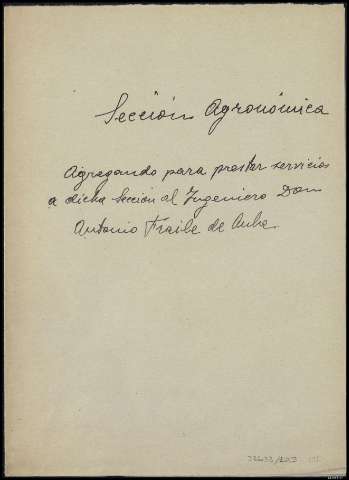 Sección Agronómica
Agregando para prestar servicios
a dicha Sección al Ingeniero Don
Antonio Fraile de